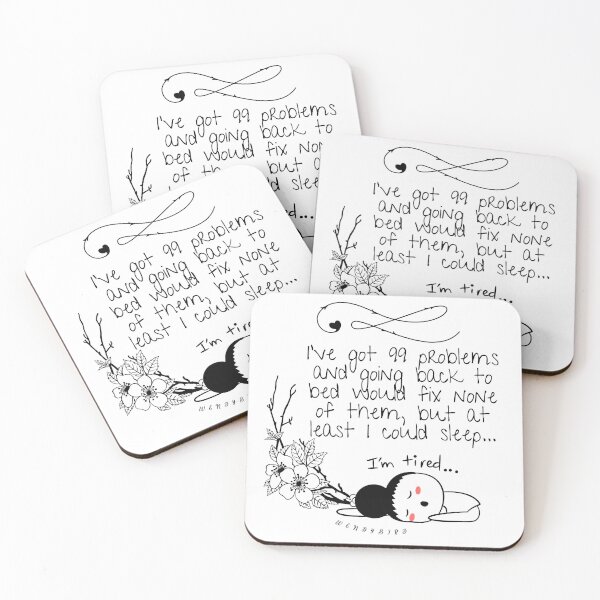 I've got 99 problems
and going back to
bed would fix none
of
sleep
I've got 99 problems
and going back to
bed would fix none
of them, but at
least I could sleep...
I'm tired...
I've got 99 problems
and going back to
bed would fix none
of them, but at
least I could sleep...
I'm tired
I've got 99 problems
and going back to
bed would fix none
of them, but at
least I could sleep...
I'm tired...